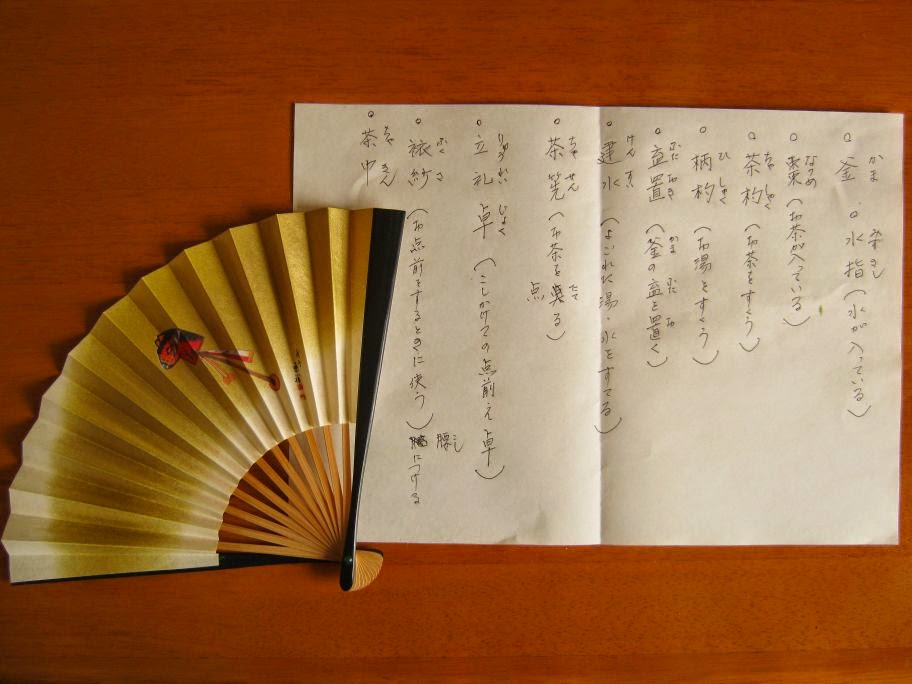 ○釜 ○水指（水が入っている）
かま みずさし
○棗（お茶が入っている）
なつめ
○茶杓（お茶をすくう）
ちゃ しゃく
○柄杓（お湯をすくう）
ひ しゃく
○蓋置（釜の蓋を置く）
ふた おき かま ふた お
○建水（よごれた湯・水をすてる）
けん すい
○茶筅（お茶を点る）
ちゃ せん たて
○立礼卓（こしかけての点前え卓）
りゅうれい じょく
○袱紗（お点前をするときに使う）腰につける
ふく さ こし
○茶巾
ちゃ きん